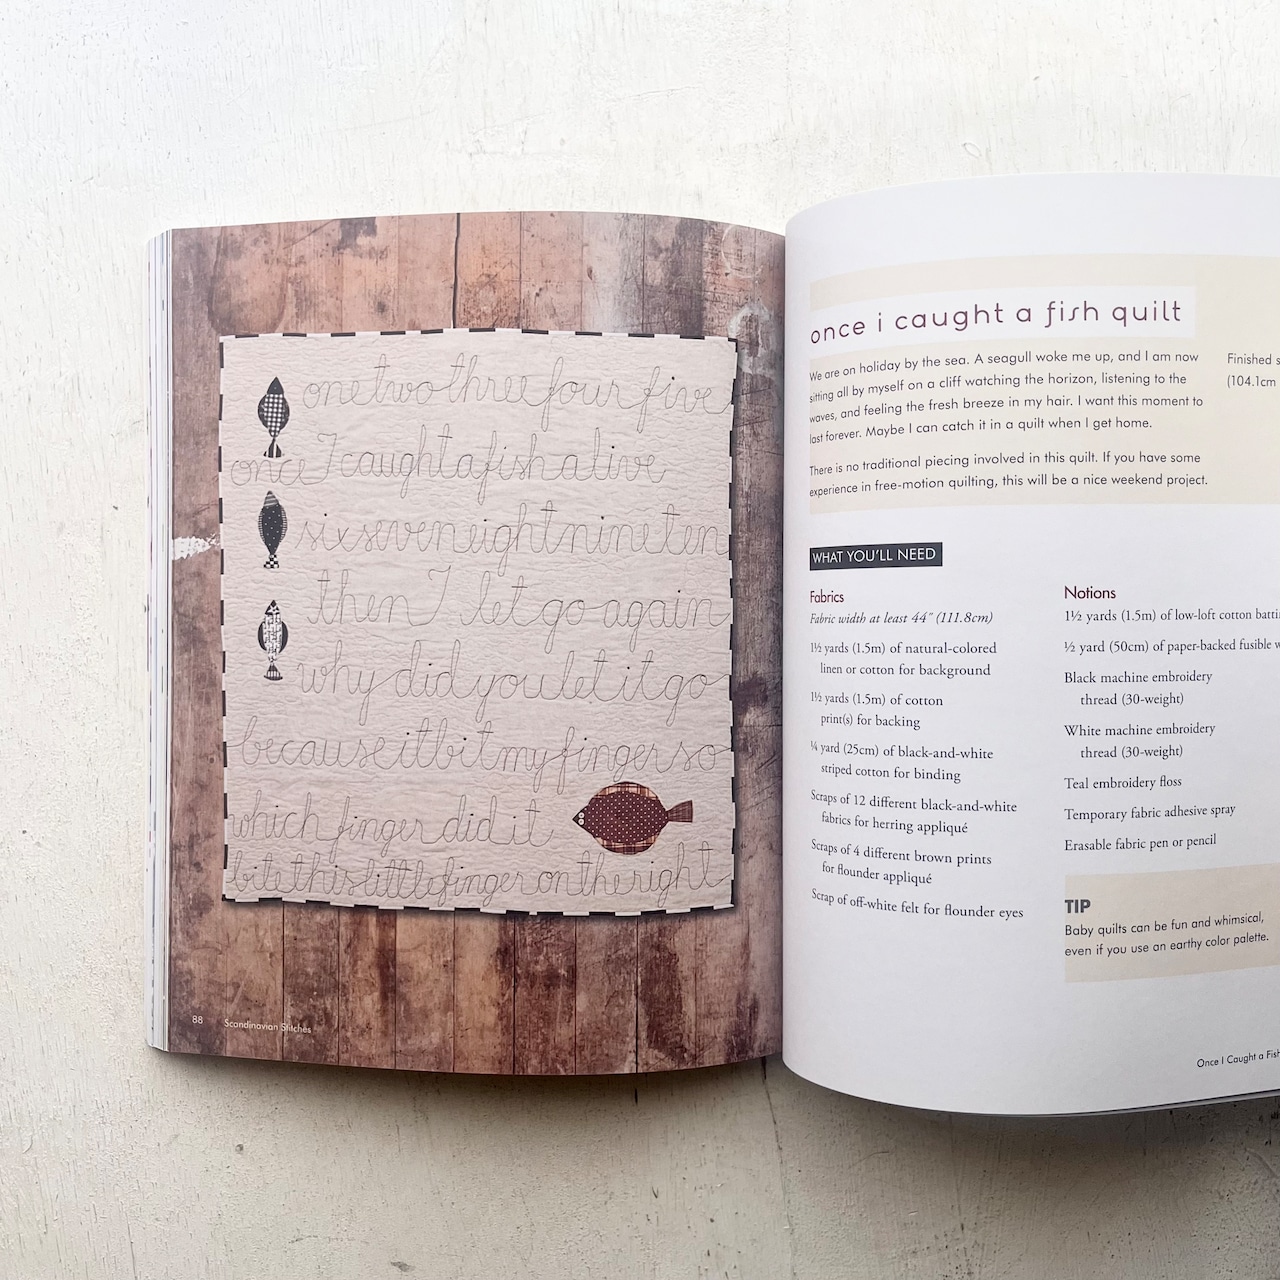 one two three four five
once I caught a fish alive
six seven eight nine ten
then I let go again
why did you let it go
because it bit my finger so
which finger did it
bite this little finger on the right
88 Scandinavian Stitches
once i caught a fish quilt
We are on holiday by the sea. A seagull woke me up, and I am now
sitting all by myself on a cliff watching the horizon, listening to the
waves, and feeling the fresh breeze in my hair. I want this moment to
last forever. Maybe I can catch it in a quilt when I get home.
There is no traditional piecing involved in this quilt. If you have some
experience in free-motion quilting, this will be a nice weekend project.
Finished
(104.1cm
WHAT YOU'LL NEED
Fabrics
Fabric width at least 44" (111.8cm)
1½ yards (1.5m) of natural-colored
linen or cotton for background
1½ yards (1.5m) of cotton
print(s) for backing
¼ yard (25cm) of black-and-white
striped cotton for binding
Scraps of 12 different black-and-white
fabrics for herring appliqué
Scraps of 4 different brown prints
for flounder appliqué
Scrap of off-white felt for flounder eyes
Notions
1½ yards (1.5m) of low-loft cotton
½ yard (50cm) of paper-backed fusible
Black machine embroidery
thread (30-weight)
White machine embroidery
thread (30-weight)
Teal embroidery floss
Temporary fabric adhesive spray
Erasable fabric pen or pencil
TIP
Baby quilts can be fun and whimsical,
even if you use an earthy color palette.
Once I Caught a Fish